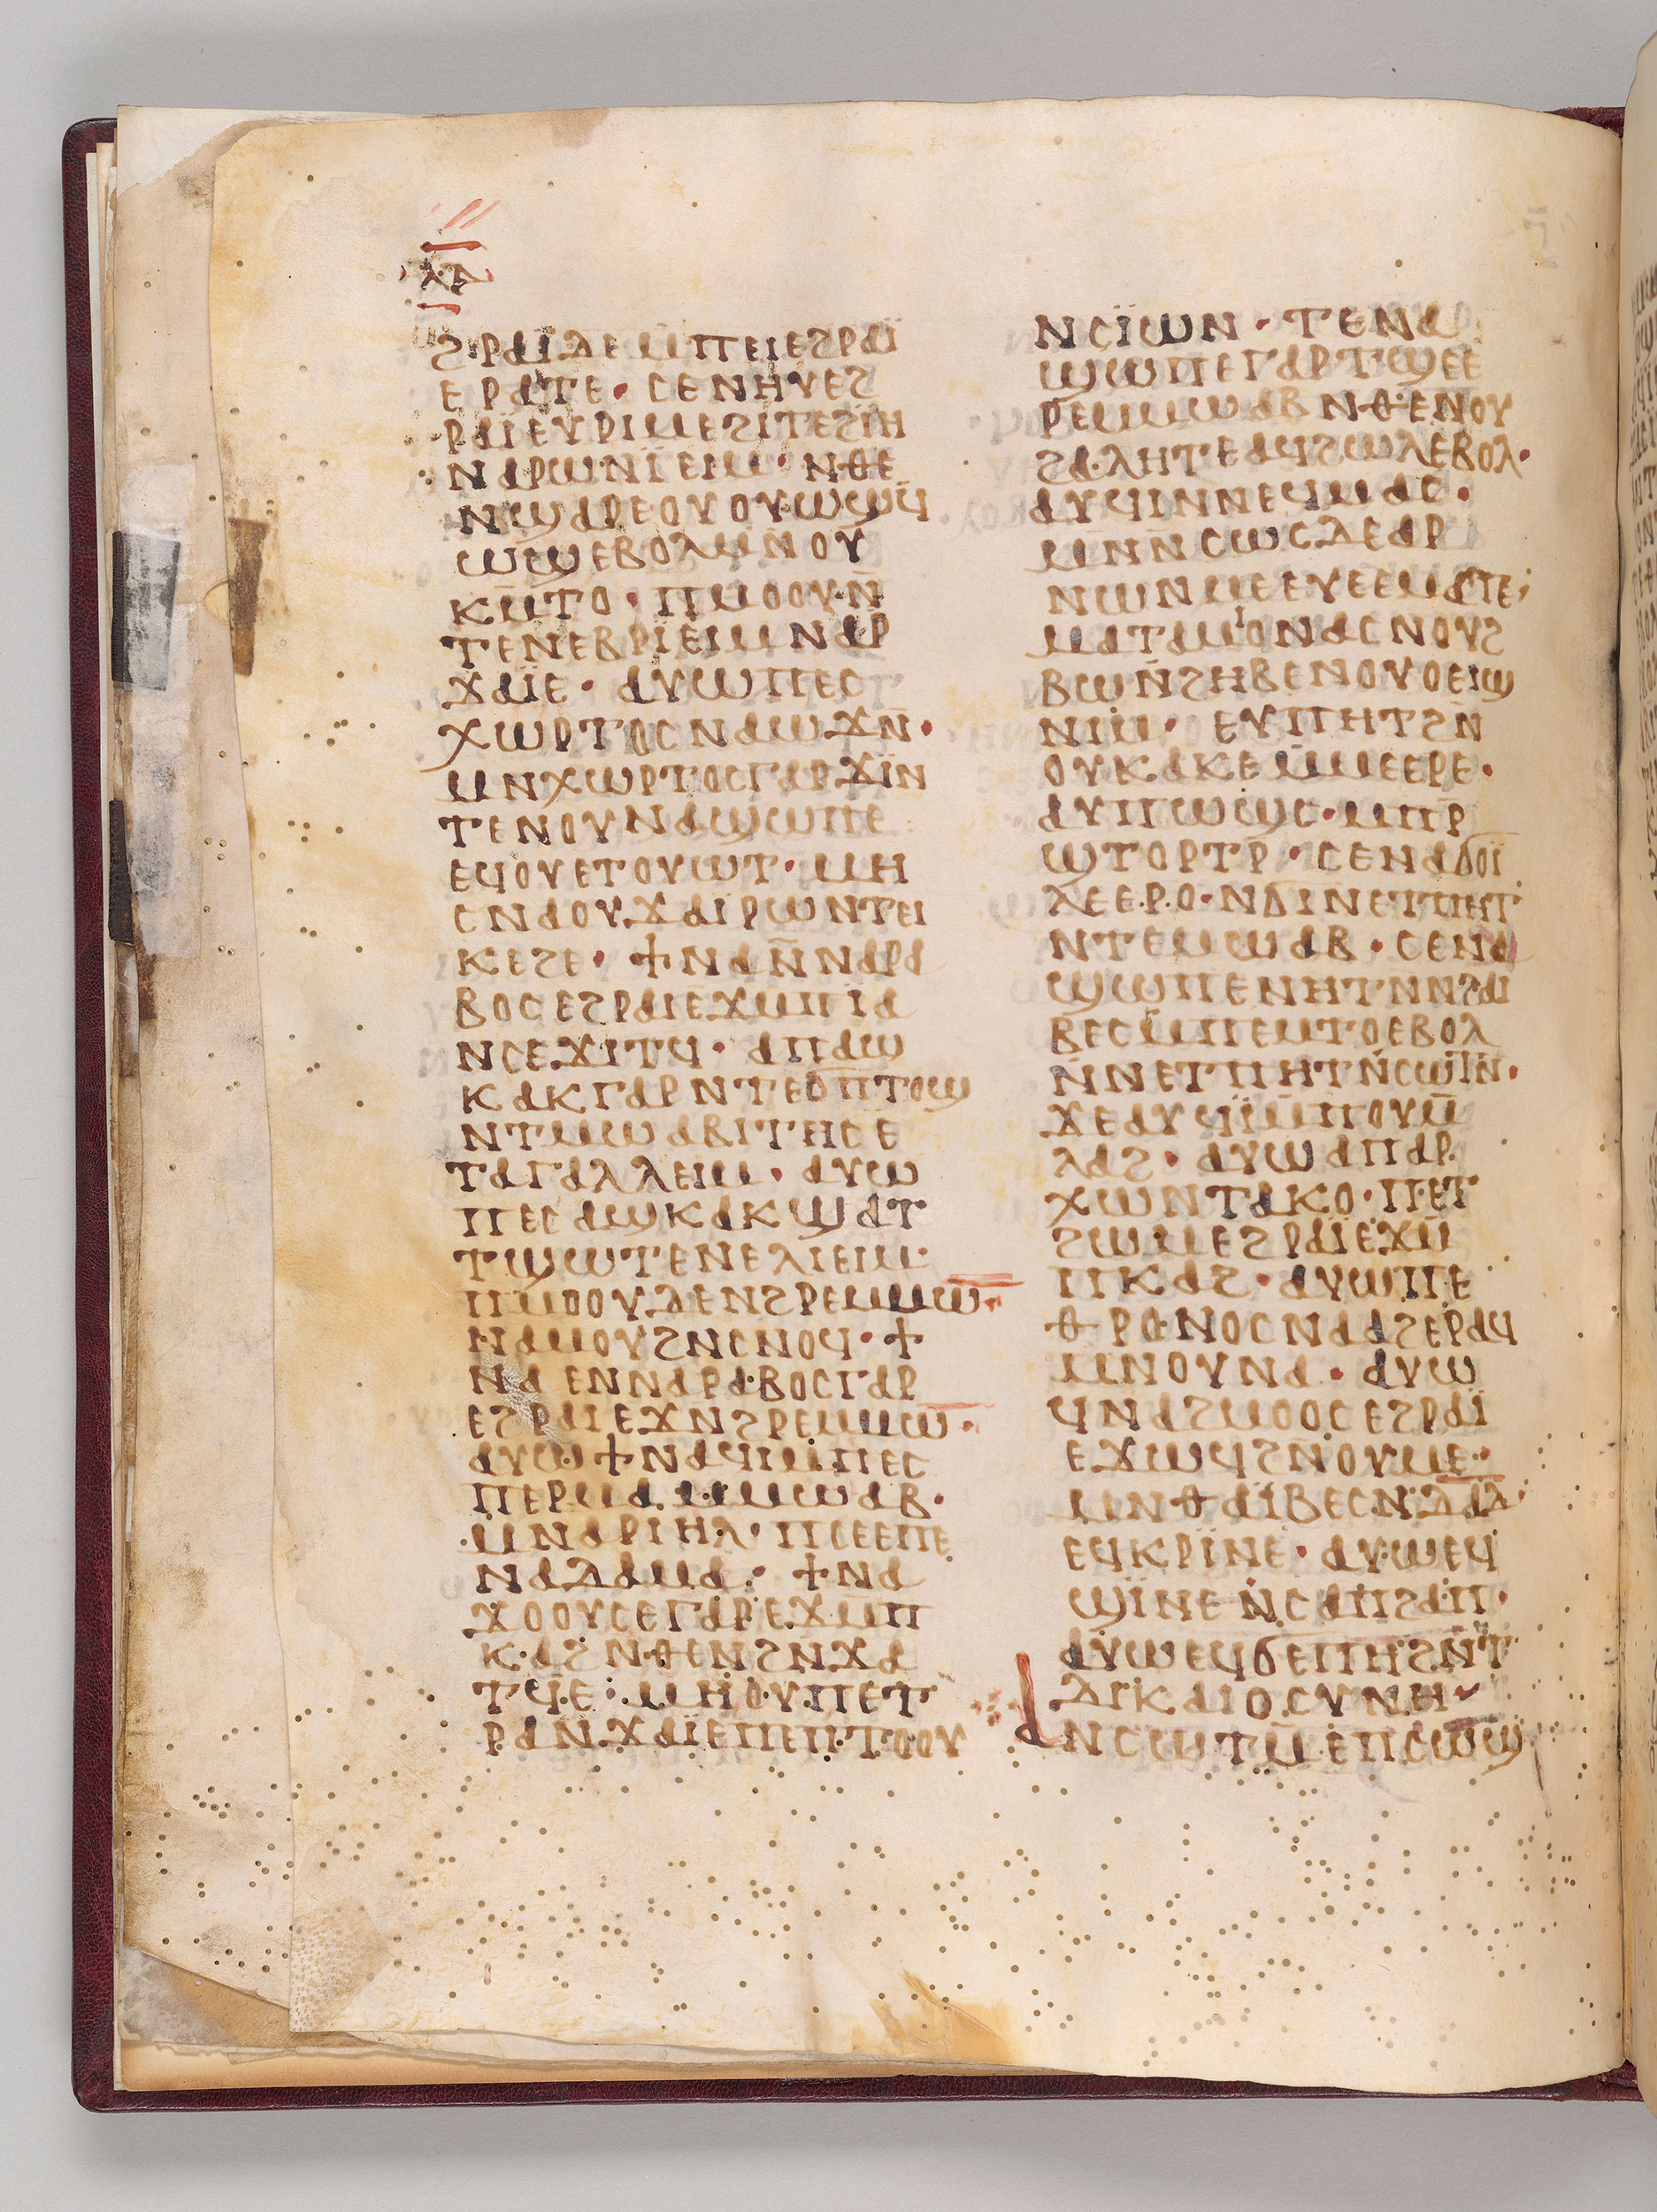 ⲗⲇ
ϩⲣⲁⲓ̈ ⲇⲉ ⲙ̄ⲡⲉⲓⲉϩⲣⲁⲓ̈
ⲉⲣⲁⲧⲉ· ⲥⲉⲛⲏⲩ ⲉϩ
ⲣⲁⲓ̈ ⲉⲩⲣⲓⲙⲉ ϩⲓ ⲧⲉϩⲓⲏ
ⲛⲁⲣⲱⲛⲓⲉⲓⲙ· ⲛⲑⲉ
ⲛϣⲁⲣⲉⲟⲩⲟⲩⲱϣϥ̄
ⲱϣ ⲉⲃⲟⲗ ⲙⲛ ⲟⲩ
ⲕⲙ̄ⲧⲟ· ⲡⲙⲟⲟⲩ ⲛ̄
ⲧⲉⲛⲉⲃⲣⲓⲉⲓⲙ ⲛⲁⲣ
ϫⲁⲓ̈ⲉ· ⲁⲩⲱ ⲡⲉⲥ
ⲭⲱⲣⲧⲟⲥ ⲛⲁⲱϫⲛ̄·
ⲙⲛ ⲭⲱⲣⲧⲟⲥ ⲅⲁⲣ ϫⲓ̈ⲛ
ⲧⲉⲛⲟⲩ ⲛⲁϣⲱⲡⲉ
ⲉϥⲟⲩⲉⲧⲟⲩⲱⲧ· ⲙⲏ
ⲥⲛⲁⲟⲩϫⲁⲓ ⲣⲱ ⲛⲧⲉⲓ
ⲕⲉϩⲉ· ϯⲛⲁⲛ̄ ⲛⲁⲣⲁ
ⲃⲟⲥ ⲉϩⲣⲁⲓ ⲉϫⲙ̄ ⲡⲓⲁ
ⲛⲥⲉϫⲓⲧϥ· ⲁⲡⲁϣ
ⲕⲁⲕ ⲅⲁⲣ ⲛⲧⲉϭ ⲡⲧⲟϣ
ⲛⲧⲙⲱⲁⲃⲓⲧⲏⲥ ⲉ
ⲧⲁⲅⲁⲗⲗⲉⲓⲙ· ⲁⲩⲱ
ⲡⲉⲥⲁϣⲕⲁⲕ ϣⲁ ⲧ
ⲧϣⲱⲧⲉ ⲛⲉⲗⲓⲉⲓⲙ·
ⲡⲙⲟⲟⲩ ⲇⲉ ⲛϩⲣⲉⲙⲙⲱ·
ⲛⲁⲙⲟⲩϩ ⲛⲥⲛⲟϥ· ϯ
ⲛⲁⲉⲛ ⲛⲁⲣⲁⲃⲟⲥ ⲅⲁⲣ
ⲉϩⲣⲁⲓ ⲉϫⲛ ϩⲣⲉⲙⲙⲱ·
ⲁⲩⲱ ϯⲛⲁϥⲓ ⲙ̄ⲡⲉⲥ
ⲡⲉⲣⲙⲁ ⲙ̄ⲙⲱⲁⲃ·
ⲙⲛ ⲁⲣⲓⲏⲗ· ⲡⲥⲉⲉⲡⲉ
ⲛⲁⲇⲁⲙⲁ· ϯⲛⲁ
ϫⲟⲟⲩⲥⲉ ⲅⲁⲣ ⲉϫⲙ̄ ⲡ
ⲕⲁϩ ⲛⲑⲉ ⲛϩⲛϫⲁ
ⲧϥ̄ⲉ· ⲙⲏ ⲟⲩⲡⲉⲧ
ⲣⲁ ⲛϫⲁⲓ̈ⲉ ⲡⲉ ⲡⲧⲟⲟⲩ
ⲛⲥⲓ̈ⲱⲛ· ⲧⲉⲛⲁ
ϣⲱⲡⲉ ⲅⲁⲣ ⲧϣⲉⲉ
ⲣⲉ ⲙⲙⲱⲁⲃ ⲛⲑⲉ ⲛⲟⲩ
ϩⲁⲗⲏⲧ ⲉⲁϥϩⲱⲗ ⲉⲃⲟⲗ·
ⲁⲩϥⲓ ⲛⲛⲉϥⲙⲁⲥ·
ⲙⲛⲛ̄ⲥⲱⲥ ⲇⲉ ⲁⲣ
ⲛⲱⲛ ⲙⲉⲉⲩⲉ ⲉⲙⲁⲧⲉ
ⲙⲁⲧⲁⲙⲓⲟ ⲛⲁⲥ ⲛⲟⲩϩ
ⲃⲱ ⲛ̄ϩⲏⲃⲉ ⲛⲟⲩⲟⲉⲓϣ
ⲛⲓⲙ̄· ⲉⲩⲡⲏⲧ ϩⲛ̄
ⲟⲩⲕⲁⲕⲉ ⲙ̄ⲙⲉⲉⲣⲉ·
ⲁⲩⲡⲱϣⲥ· ⲙⲡⲣ̄
ϣⲧⲟⲣⲧⲣ̄· ⲥⲉⲛⲁϭⲟⲓ̈
ⲗⲉ ⲉⲣⲟ· ⲛϭⲓ ⲛⲉⲧⲡⲏⲧ
ⲛⲧⲉ ⲙⲱⲁⲃ· ⲥⲉⲛⲁ
ϣⲱⲡⲉ ⲛⲏⲧⲛ ⲛϩⲁⲓ
ⲃⲉⲥ ⲙ̄ⲡⲉⲙⲧⲟ ⲉⲃⲟⲗ
ⲛ̄ⲛⲉⲧⲡⲏⲧ ⲛ̄ⲥⲱⲧⲛ̄·
ϫⲉ ⲁⲩϥⲓ̈ ⲙ̄ⲡⲟⲩⲙ̄
ⲗⲁϩ· ⲁⲩⲱ ⲁⲡⲁⲣ
ⲭⲱⲛ ⲧⲁⲕⲟ· ⲡⲉⲧ
ϩⲱⲙ ⲉϩⲣⲁⲓ ⲉϫⲙ̄
ⲡⲕⲁϩ· ⲁⲩⲱ ⲡⲉ
ⲑⲣⲟⲛⲟⲥ ⲛⲁⲁϩⲉⲣⲁϥ
ⲙⲛ ⲟⲩⲛⲁ· ⲁⲩⲱ
ϥⲛⲁϩⲙⲟⲟⲥ ⲉϩⲣⲁⲓ̈
ⲉϫⲱϥ ϩⲛ ⲟⲩⲙⲉ·
ⲙⲛ ⲑⲁⲓ̈ⲃⲉⲥ ⲛ̄ⲇⲁⲇ·
ⲉϥⲕⲣⲓ̈ⲛⲉ· ⲁⲩⲱ ⲉϥ
ϣⲓ̈ⲛⲉ ⲛ̄ⲥⲁ ⲡϩⲁⲡ·
ⲁⲩⲱ ⲉϥϭⲉⲡⲏ ϩⲛ̄ ⲧ
ⲇⲓⲕⲁⲓⲟⲥⲩⲛⲏ·
ⲁⲛⲥⲱⲧⲙ̄ ⲉⲡⲥⲱϣ